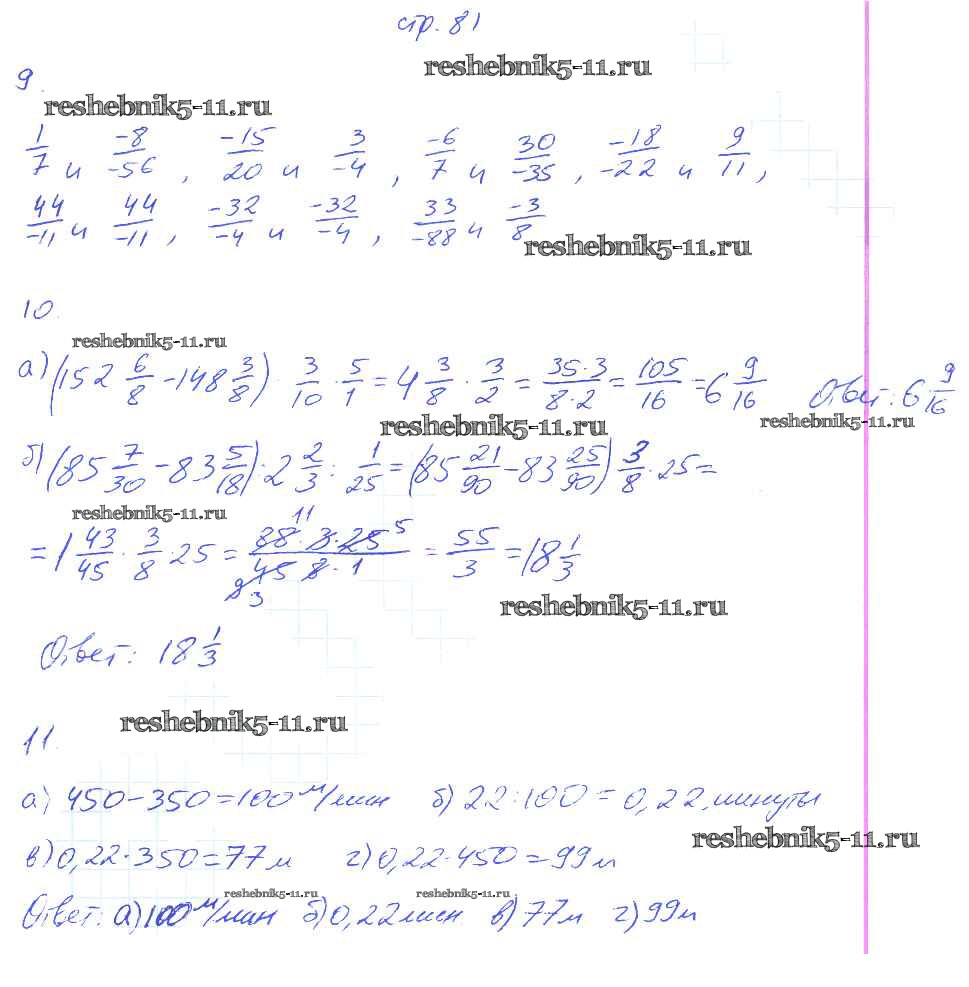 стр. 81
reshebnik5-11.ru
9.
reshebnik5-11.ru
1/7 и -8/-56, -15/20 и 3/-4, -6/7 и 30/-35, -18/-22 и 9/11,
44/-11 и 44/-11, -32/-4 и -32/-4, 33/-88 и -3/8
reshebnik5-11.ru
10.
reshebnik5-11.ru
а) (152 6/8 - 148 3/8) · 3/10 · 5/1 = 4 3/8 · 3/2 = 35·3/8·2 = 105/16 = 6 9/16 Ответ: 6 9/16
reshebnik5-11.ru
reshebnik5-11.ru
б) (85 7/30 - 83 5/18) · 2 2/3 : 1/25 = (85 21/90 - 83 25/90) 3/8 · 25 =
reshebnik5-11.ru
= 1 43/45 · 3/8 · 25 = 88·3·25/45 8·1 = 55/3 = 18 1/3
11 5
9 3
reshebnik5-11.ru
Ответ: 18 1/3
reshebnik5-11.ru
11.
а) 450-350=100 м/мин б) 22:100=0,22 минуты
reshebnik5-11.ru
в) 0,22·350=77 м г) 0,22·450=99 м
reshebnik5-11.ru reshebnik5-11.ru
Ответ: а) 100 м/мин б) 0,22 мин в) 77 м г) 99 м